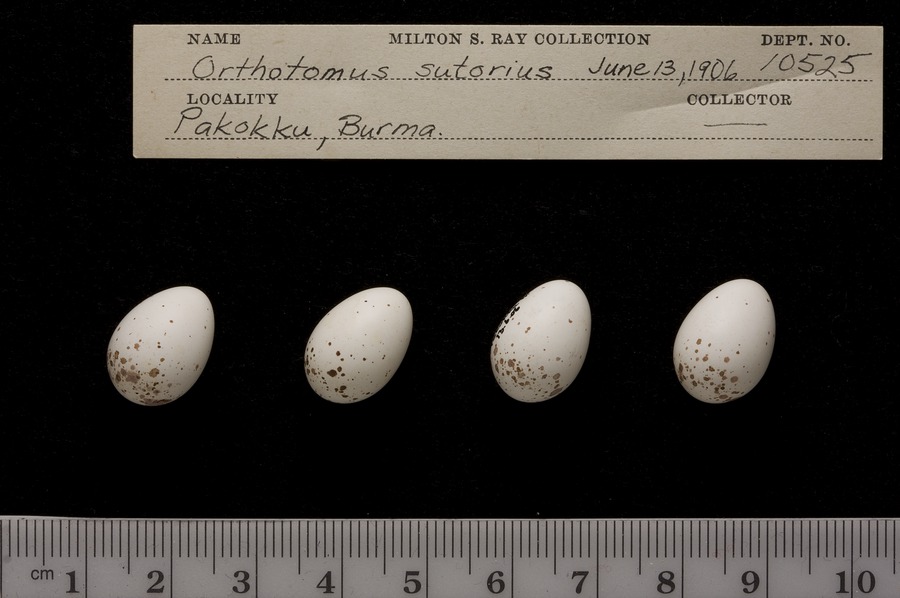 NAME MILTON S. RAY COLLECTION DEPT. NO.
Orthotomus sutorius June 13, 1906 10525
LOCALITY COLLECTOR
Pakokku, Burma.
cm 1 2 3 4 5 6 7 8 9 10